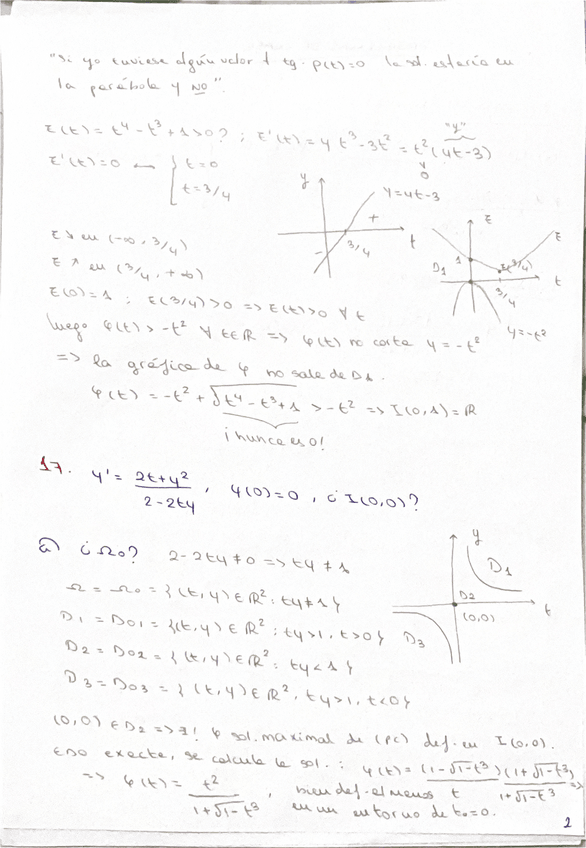 "Si yo tuviese algún valor t tq. p(t)=0 la sol. estaría en
la parábola y NO".
E(t) = t⁴ - t³ + 1 > 0? ; E'(t) = 4t³ - 3t² = t² (4t-3)
"y"
v
0
E'(t)=0 { t=0
t=3/4
y
y=4t-3
+
-
3/4
t
E
E
E(3/4)
1
D₁
3/4
t
y=-t²
E ↘ en (-∞, 3/4)
E ↗ en (3/4, +∞)
E(0)=1 ; E(3/4)>0 => E(t)>0 ∀t
luego φ(t) > -t² ∀ t∈ℝ => φ(t) no corta y = -t²
=> la gráfica de φ no sale de D₁.
φ(t) = -t² + √(t⁴ - t³ + 1) > -t² => I(0,1) = ℝ
¡nunca es 0!
17. y' = (2t+y²)/(2-2ty), y(0)=0, ¿I(0,0)?
a) ¿Ω₀? 2-2ty ≠ 0 => ty ≠ 1.
Ω = Ω₀ = {(t,y) ∈ ℝ² : ty ≠ 1}
D₁ = D₀₁ = {(t,y) ∈ ℝ² : ty>1, t>0}
D₂ = D₀₂ = {(t,y) ∈ ℝ² : ty<1}
D₃ = D₀₃ = {(t,y) ∈ ℝ², ty>1, t<0}
y
D₁
D₂
t
(0,0)
D₃
(0,0) ∈ D₂ => ∃! φ sol. maximal de (PC) def. en I(0,0).
EDO exacta, se calcula la sol.: φ(t) = (1-√(1-t³))/t · (1+√(1-t³))/(1+√(1-t³)) =>
=> φ(t) = t²/(1+√(1-t³)), bien def. al menos
en un entorno de t₀=0.
2